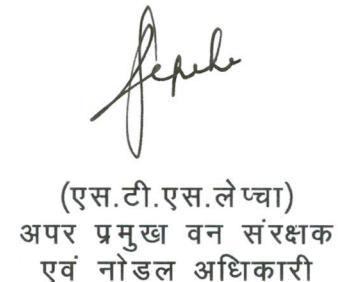 Lepcha
(एस.टी.एस.लेप्चा)
अपर प्रमुख वन संरक्षक
एवं नोडल अधिकारी